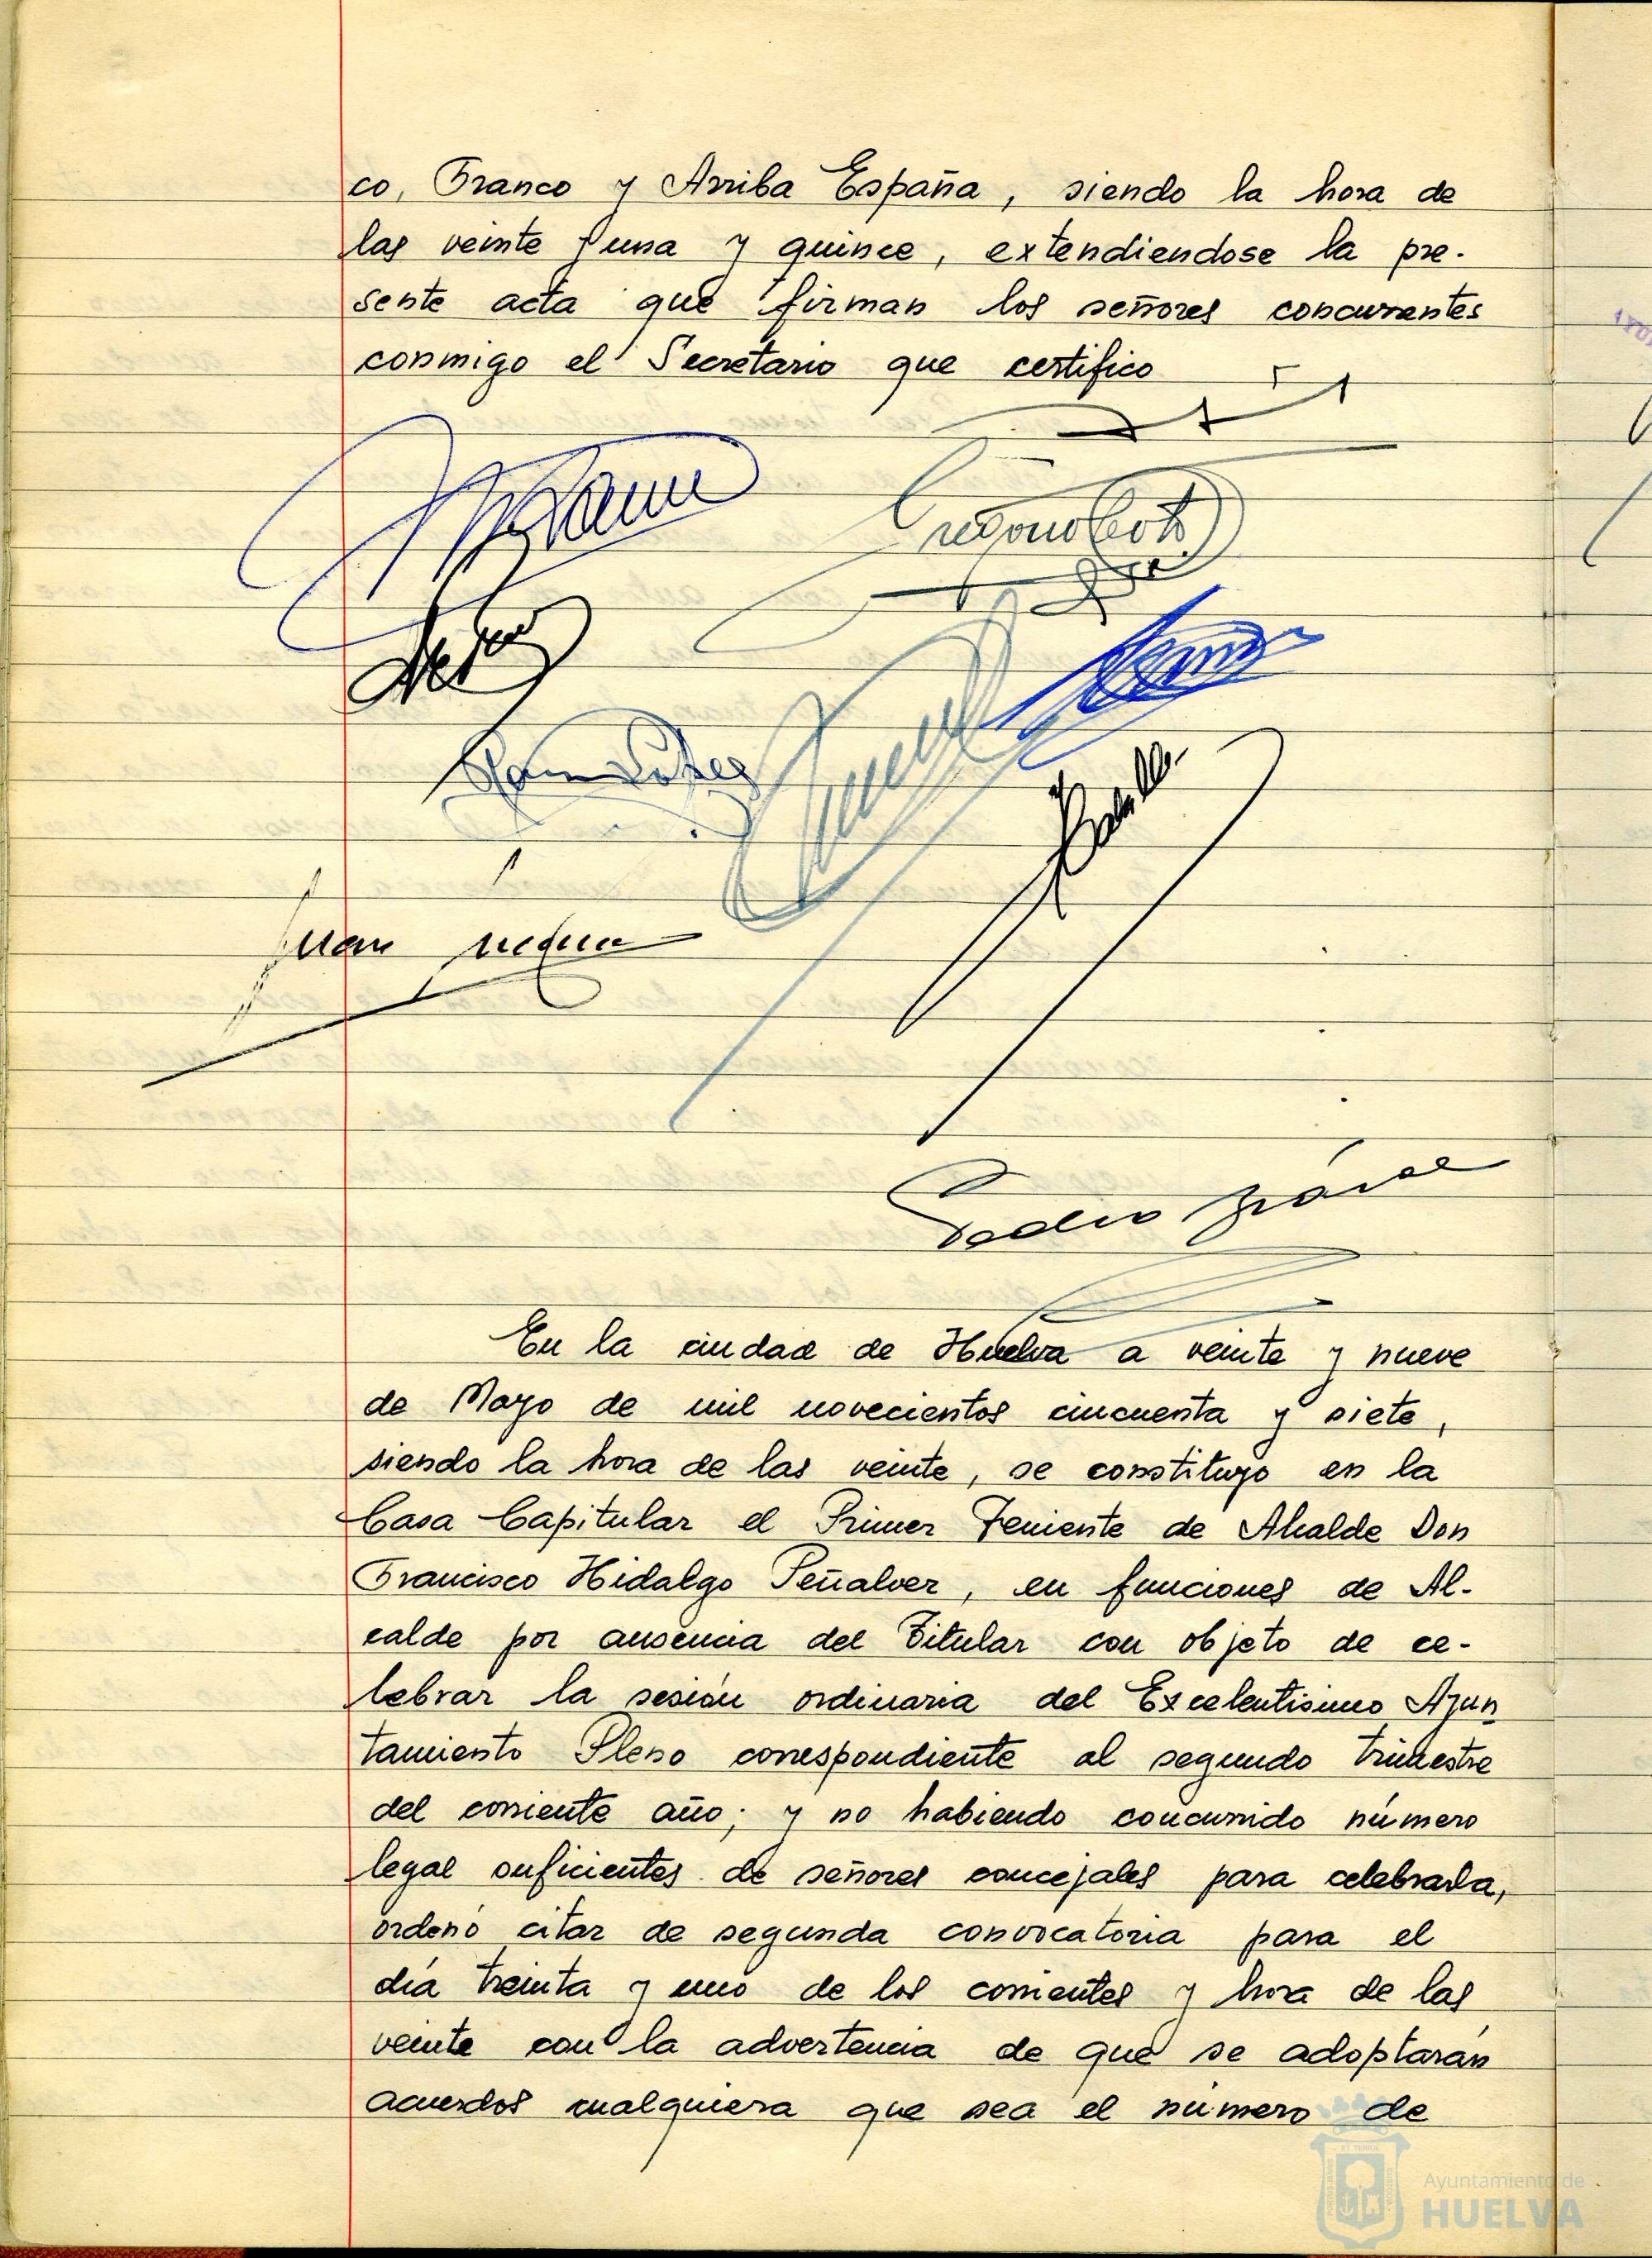 co, Franco y Arriba España, siendo la hora de
las veinte y una y quince, extendiendose la pre-
sente acta que firman los señores concurrentes
conmigo el Secretario que certifico
Juan
Pedro
En la ciudad de Huelva a veinte y nueve
de Mayo de mil novecientos cincuenta y siete,
siendo la hora de las veinte, se constituyo en la
Casa Capitular el Primer Teniente de Alcalde Don
Francisco Hidalgo Peñalver, en funciones de Al-
calde por ausencia del Titular con objeto de ce-
lebrar la sesión ordinaria del Excelentisimo Ayun
tamiento Pleno correspondiente al segundo trimestre
del corriente año; y no habiendo concurrido número
legal suficientes de señores concejales para celebrarla,
ordenó citar de segunda convocatoria para el
día treinta y uno de los corrientes y hora de las
veinte con la advertencia de que se adoptarán
acuerdos cualquiera que sea el número de
Ayuntamiento de
HUELVA